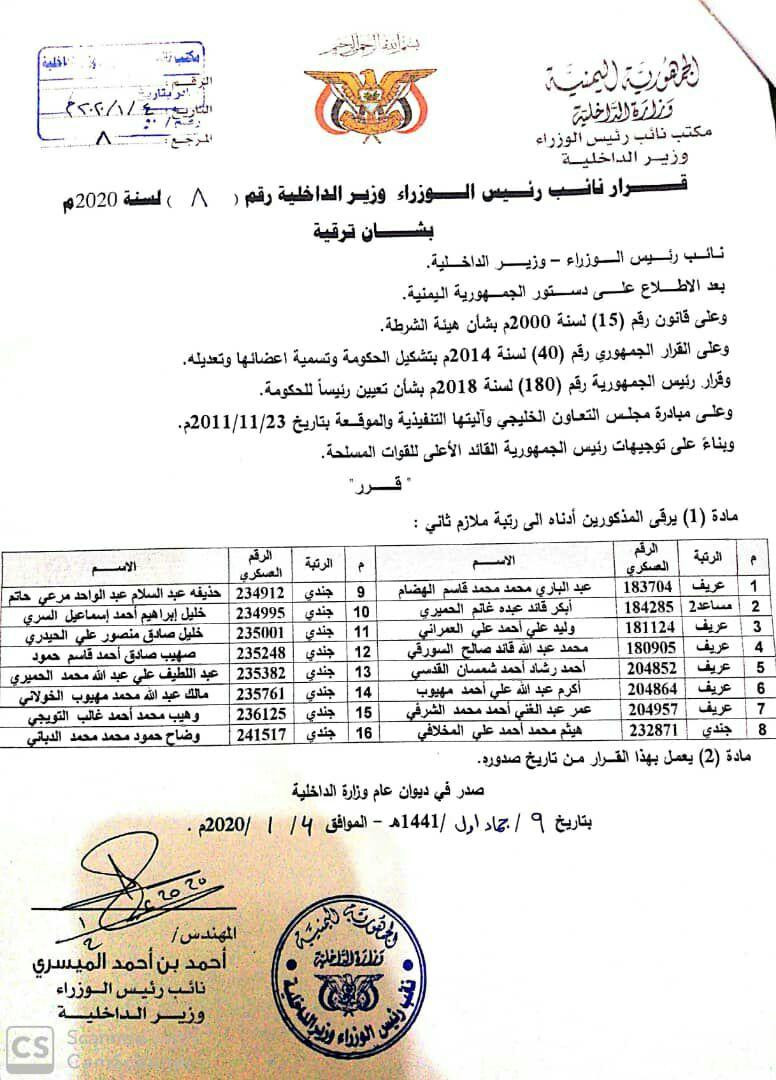 بسم الله الرحمن الرحيم
الجمهورية اليمنية
وزارة الداخلية
مكتب نائب رئيس الوزراء
وزير الداخلية
الرقم:
التاريخ: ٢٠٢٠/١/٤م
المرجع: ٨
قرار نائب رئيس الوزراء وزير الداخلية رقم ( ٨ ) لسنة 2020م
بشان ترقية
نائب رئيس الوزراء – وزير الداخلية.
بعد الاطلاع على دستور الجمهورية اليمنية.
وعلى قانون رقم (15) لسنة 2000م بشأن هيئة الشرطة.
وعلى القرار الجمهوري رقم (40) لسنة 2014م بتشكيل الحكومة وتسمية اعضائها وتعديله.
وقرار رئيس الجمهورية رقم (180) لسنة 2018م بشأن تعيين رئيساً للحكومة.
وعلى مبادرة مجلس التعاون الخليجي وآليتها التنفيذية والموقعة بتاريخ 2011/11/23م.
وبناءً على توجيهات رئيس الجمهورية القائد الأعلى للقوات المسلحة.
" قرر "
مادة (1) يرقى المذكورين أدناه الى رتبة ملازم ثاني :
م الرتبة الرقم العسكري الاسم م الرتبة الرقم العسكري الاسم
1 عريف 183704 عبد الباري محمد محمد قاسم الهضام 9 جندي 234912 حذيفه عبد السلام عبد الواحد مرعي حاتم
2 مساعد2 184285 أبكر قائد عبده غانم الحميري 10 جندي 234995 خليل إبراهيم أحمد إسماعيل السري
3 عريف 181124 وليد علي أحمد علي العمراني 11 جندي 235001 خليل صادق منصور علي الحيدري
4 عريف 180905 محمد عبد الله قائد صالح السورقي 12 جندي 235248 صهيب صادق أحمد قاسم حمود
5 عريف 204852 أحمد رشاد أحمد شمسان القدسي 13 جندي 235382 عبد اللطيف علي عبد الله محمد الحميري
6 عريف 204864 أكرم عبد الله علي أحمد مهيوب 14 جندي 235761 مالك عبد الله محمد مهيوب الخولاني
7 عريف 204957 عمر عبد الغني أحمد محمد الشرفي 15 جندي 236125 وهيب محمد أحمد غالب التويجي
8 جندي 232871 هيثم محمد أحمد علي المخلافي 16 جندي 241517 وضاح حمود محمد محمد الدباني
مادة (2) يعمل بهذا القرار من تاريخ صدوره.
صدر في ديوان عام وزارة الداخلية
بتاريخ ٩ / جماد اول /1441هـ – الموافق ٤ / ١ /2020م .
2020
المهندس/
أحمد بن أحمد الميسري
نائب رئيس الوزراء
وزير الداخلية
الجمهورية اليمنية
وزارة الداخلية
نائب رئيس الوزراء وزير الداخلية
CS